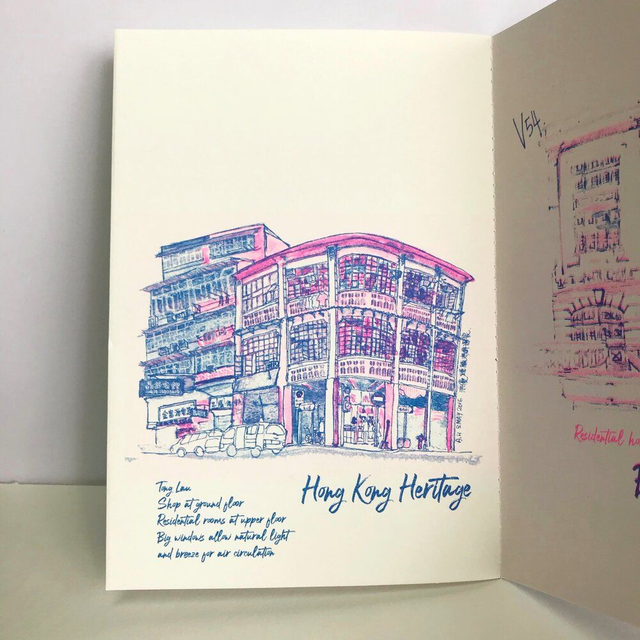 V54
Hong Kong Heritage
Tong Lau
Shop at ground floor
Residential rooms at upper floor
Big windows allow natural light
and breeze for air circulation
Residential